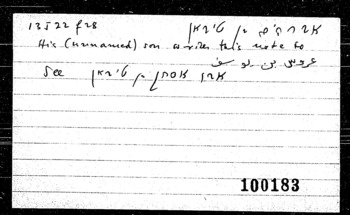 13J22 f28 אברהים בן טיבאן
His (unnamed) son writes this note to
عروس بن يوسف
See אבו אסחק בן טיבאן
100183